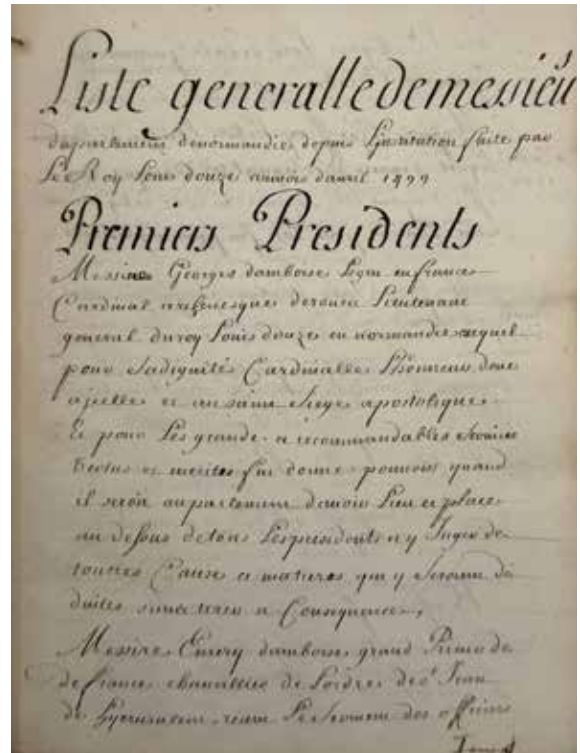 Liste generalle de messieu
du parlement de normandie depuis L'institution faite par
Le Roy Louis douze au mois davril 1499
Premiers Presidents
Messire Georges damboise Legat en france
Cardinal archevesque de rouen Lieutenant
general du roy Louis douze en normandie auquel
pour sa dignité Cardinalle Lhonneur deue
a jcelle et au saint siege apostolique
Et pour Les grands et recommandables services
vertus et merites fut donné pouvoir quand
il seroit au parlement davoir Lieu et place
au dessus de tous Les presidents et y Juger de
touttes Causes et matieres qui y seroient de
duites sans tirer a Consequence,
Messire Emery damboise grand Prieur de
de france chevallier de Lordre de St Jean
de hyerusalem receut Le serment des officiers